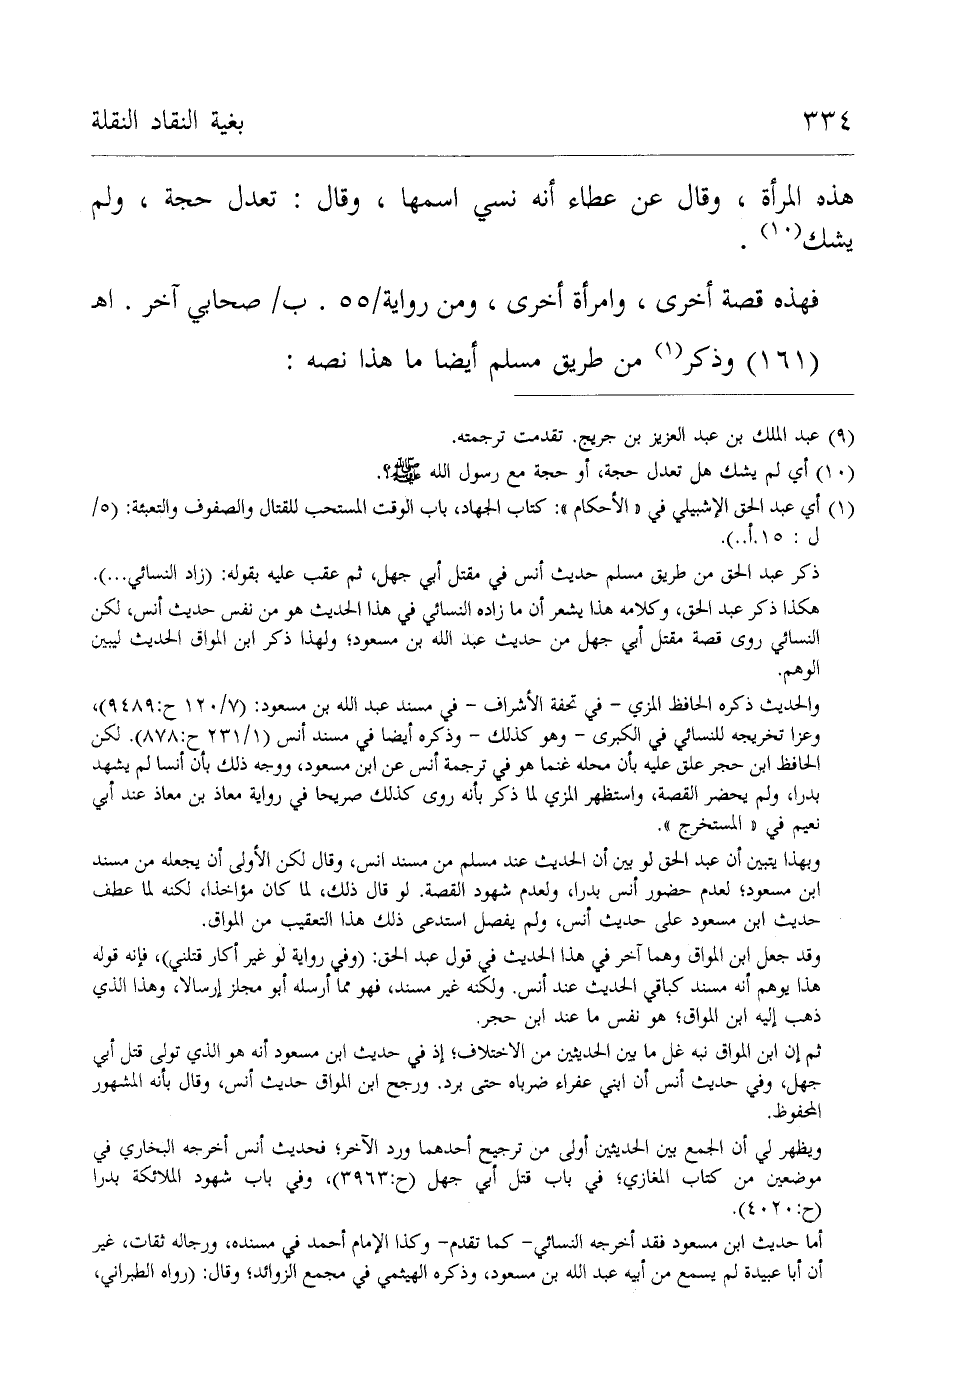 ٣٣٤
بغية النقاد النقلة
هذه المرأة ، وقال عن عطاء أنه نسي اسمها ، وقال : تعدل حجة ، ولم
يشك(١٠) .
فهذه قصة أخرى ، وامرأة أخرى ، ومن رواية/٥٥ . ب/ صحابي آخر . اهـ
(١٦١) وذكر(١) من طريق مسلم أيضا ما هذا نصه :
(٩) عبد الملك بن عبد العزيز بن جريج. تقدمت ترجمته.
(١٠) أي لم يشك هل تعدل حجة، أو حجة مع رسول الله ﷺ؟.
(١) أي عبد الحق الإشبيلي في « الأحكام »: كتاب الجهاد، باب الوقت المستحب للقتال والصفوف والتعبئة: (٥/
ل : ١٥.أ..).
ذكر عبد الحق من طريق مسلم حديث أنس في مقتل أبي جهل، ثم عقب عليه بقوله: (زاد النسائي...).
هكذا ذكر عبد الحق، وكلامه هذا يشعر أن ما زاده النسائي في هذا الحديث هو من نفس حديث أنس، لكن
النسائي روى قصة مقتل أبي جهل من حديث عبد الله بن مسعود؛ ولهذا ذكر ابن المواق الحديث ليبين
الوهم.
والحديث ذكره الحافظ المزي - في تحفة الأشراف - في مسند عبد الله بن مسعود: (١٢٠/٧ ح:٩٤٨٩)،
وعزا تخريجه للنسائي في الكبرى - وهو كذلك - وذكره أيضا في مسند أنس (٢٣١/١ ح:٨٧٨). لكن
الحافظ ابن حجر علق عليه بأن محله غنما هو في ترجمة أنس عن ابن مسعود، ووجه ذلك بأن أنسا لم يشهد
بدرا، ولم يحضر القصة، واستظهر المزي لما ذكر بأنه روى كذلك صريحا في رواية معاذ بن معاذ عند أبي
نعيم في « المستخرج ».
وبهذا يتبين أن عبد الحق لو بين أن الحديث عند مسلم من مسند انس، وقال لكن الأولى أن يجعله من مسند
ابن مسعود؛ لعدم حضور أنس بدرا، ولعدم شهود القصة. لو قال ذلك، لما كان مؤاخذا، لكنه لما عطف
حديث ابن مسعود على حديث أنس، ولم يفصل استدعى ذلك هذا التعقيب من المواق.
وقد جعل ابن المواق وهما آخر في هذا الحديث في قول عبد الحق: (وفي رواية لو غير أكار قتلني)، فإنه قوله
هذا يوهم أنه مسند كباقي الحديث عند أنس. ولكنه غير مسند، فهو مما أرسله أبو مجلز إرسالا، وهذا الذي
ذهب إليه ابن المواق؛ هو نفس ما عند ابن حجر.
ثم إن ابن المواق نبه غل ما بين الحديثين من الاختلاف؛ إذ في حديث ابن مسعود أنه هو الذي تولى قتل أبي
جهل، وفي حديث أنس أن ابني عفراء ضرباه حتى برد. ورجح ابن المواق حديث أنس، وقال بأنه المشهور
المحفوظ.
ويظهر لي أن الجمع بين الحديثين أولى من ترجيح أحدهما ورد الآخر؛ فحديث أنس أخرجه البخاري في
موضعين من كتاب المغازي؛ في باب قتل أبي جهل (ح:٣٩٦٣)، وفي باب شهود الملائكة بدرا
(ح:٤٠٢٠).
أما حديث ابن مسعود فقد أخرجه النسائي- كما تقدم- وكذا الإمام أحمد في مسنده، ورجاله ثقات، غير
أن أبا عبيدة لم يسمع من أبيه عبد الله بن مسعود، وذكره الهيثمي في مجمع الزوائد؛ وقال: (رواه الطبراني،